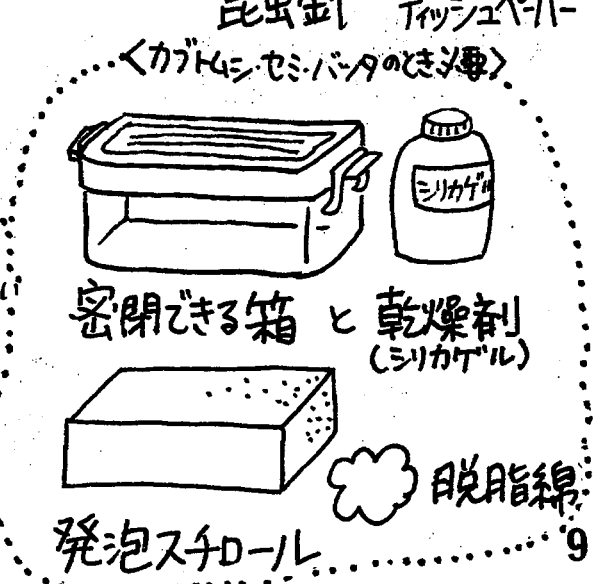 昆虫針 ティッシュペーパー
〈カブトムシ・セミ・バッタのとき必要〉
シリカゲル
密閉できる箱 と 乾燥剤
(シリカゲル)
脱脂綿
発泡スチロール
9